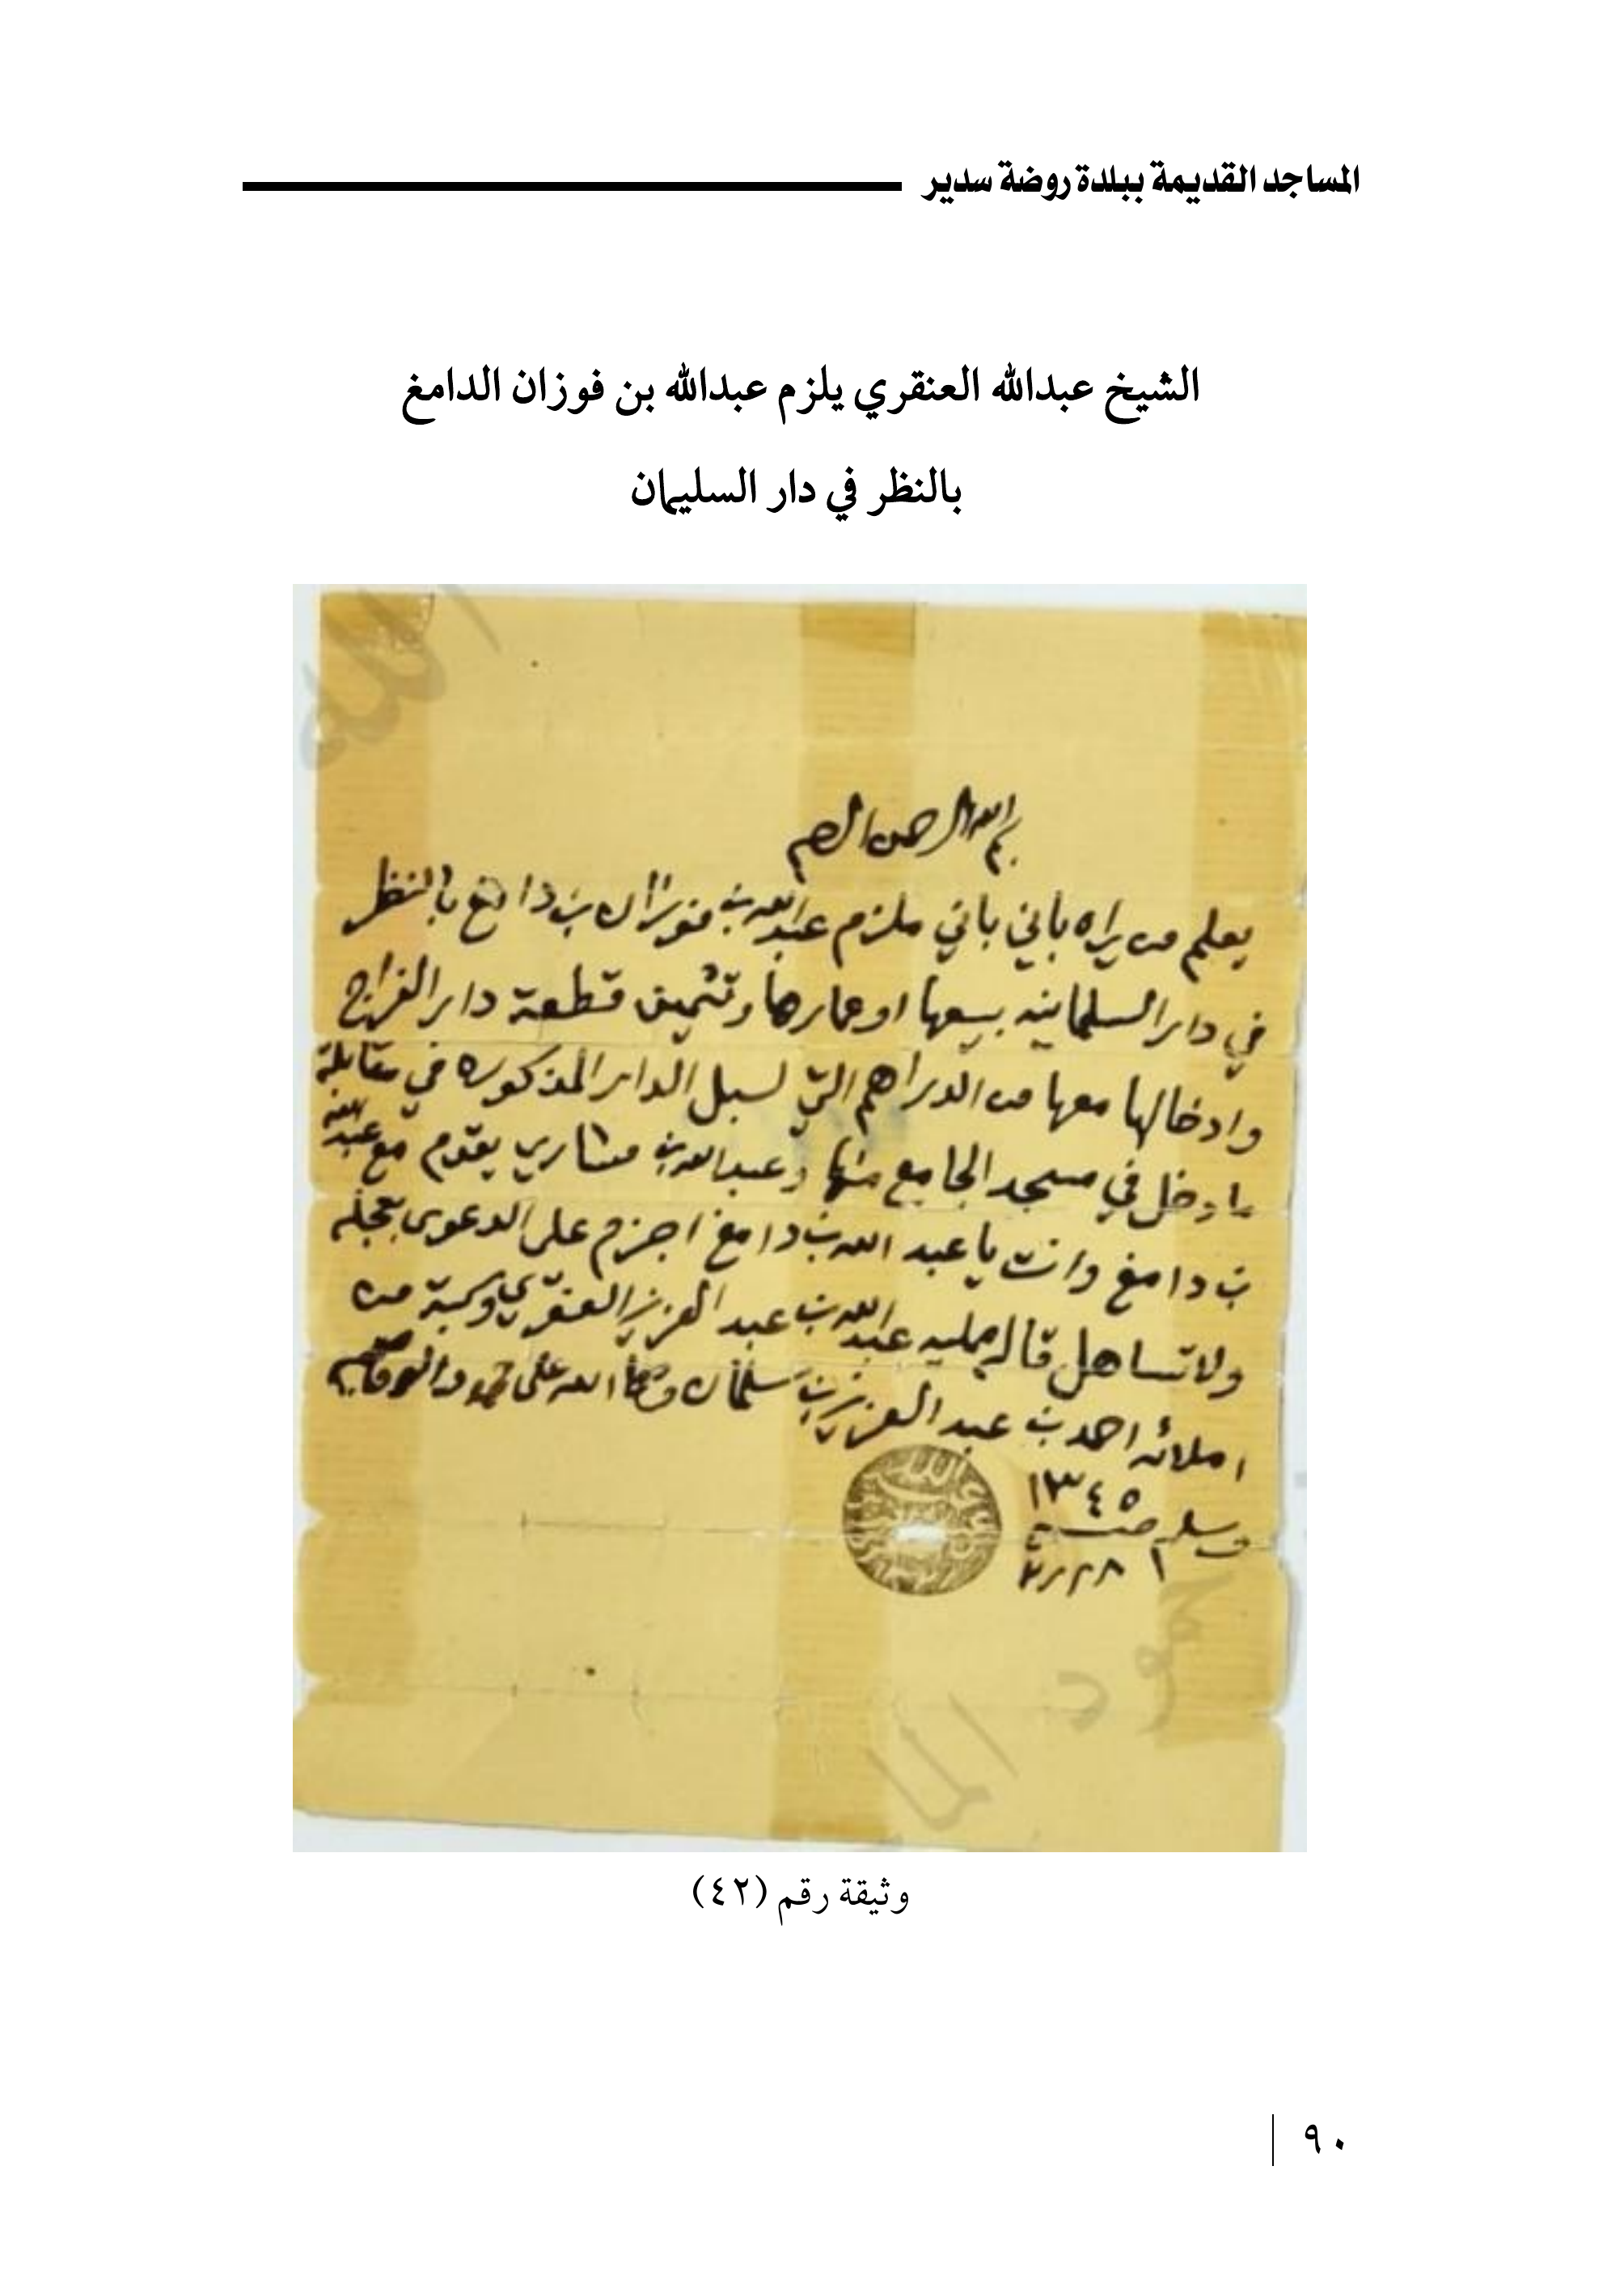 المساجد القديمة ببلدة روضة سدير
الشيخ عبدالله العنقري يلزم عبدالله بن فوزان الدامغ
بالنظر في دار السليمان
بسم الله الرحمن الرحيم
يعلم من يراه بأني باني ملزم عبدالله بن فوزان بن دامغ بالنظر
في دار السلمانيه ببيعها او عمارها وتثمين قطعة دار الفراج
وادخالها معها من الدراهم التي لسبل الدار المذكوره في مقابلة
ما دخل في مسجد الجامع منها وعبدالله بن مشاري يقدم مع عبدالله
بن دامغ وانت يا عبد الله بن دامغ اجزم على الدعوى بعجله
ولا تساهل قاله ممليه عبدالله بن عبد العزيز العنقري وكتبه من
املائه احمد بن عبد العزيز بن سلمان وصلى الله على محمد واله وصحبه
وسلم
١٣٤٥
٢٨
وثيقة رقم (٤٢)
٩٠